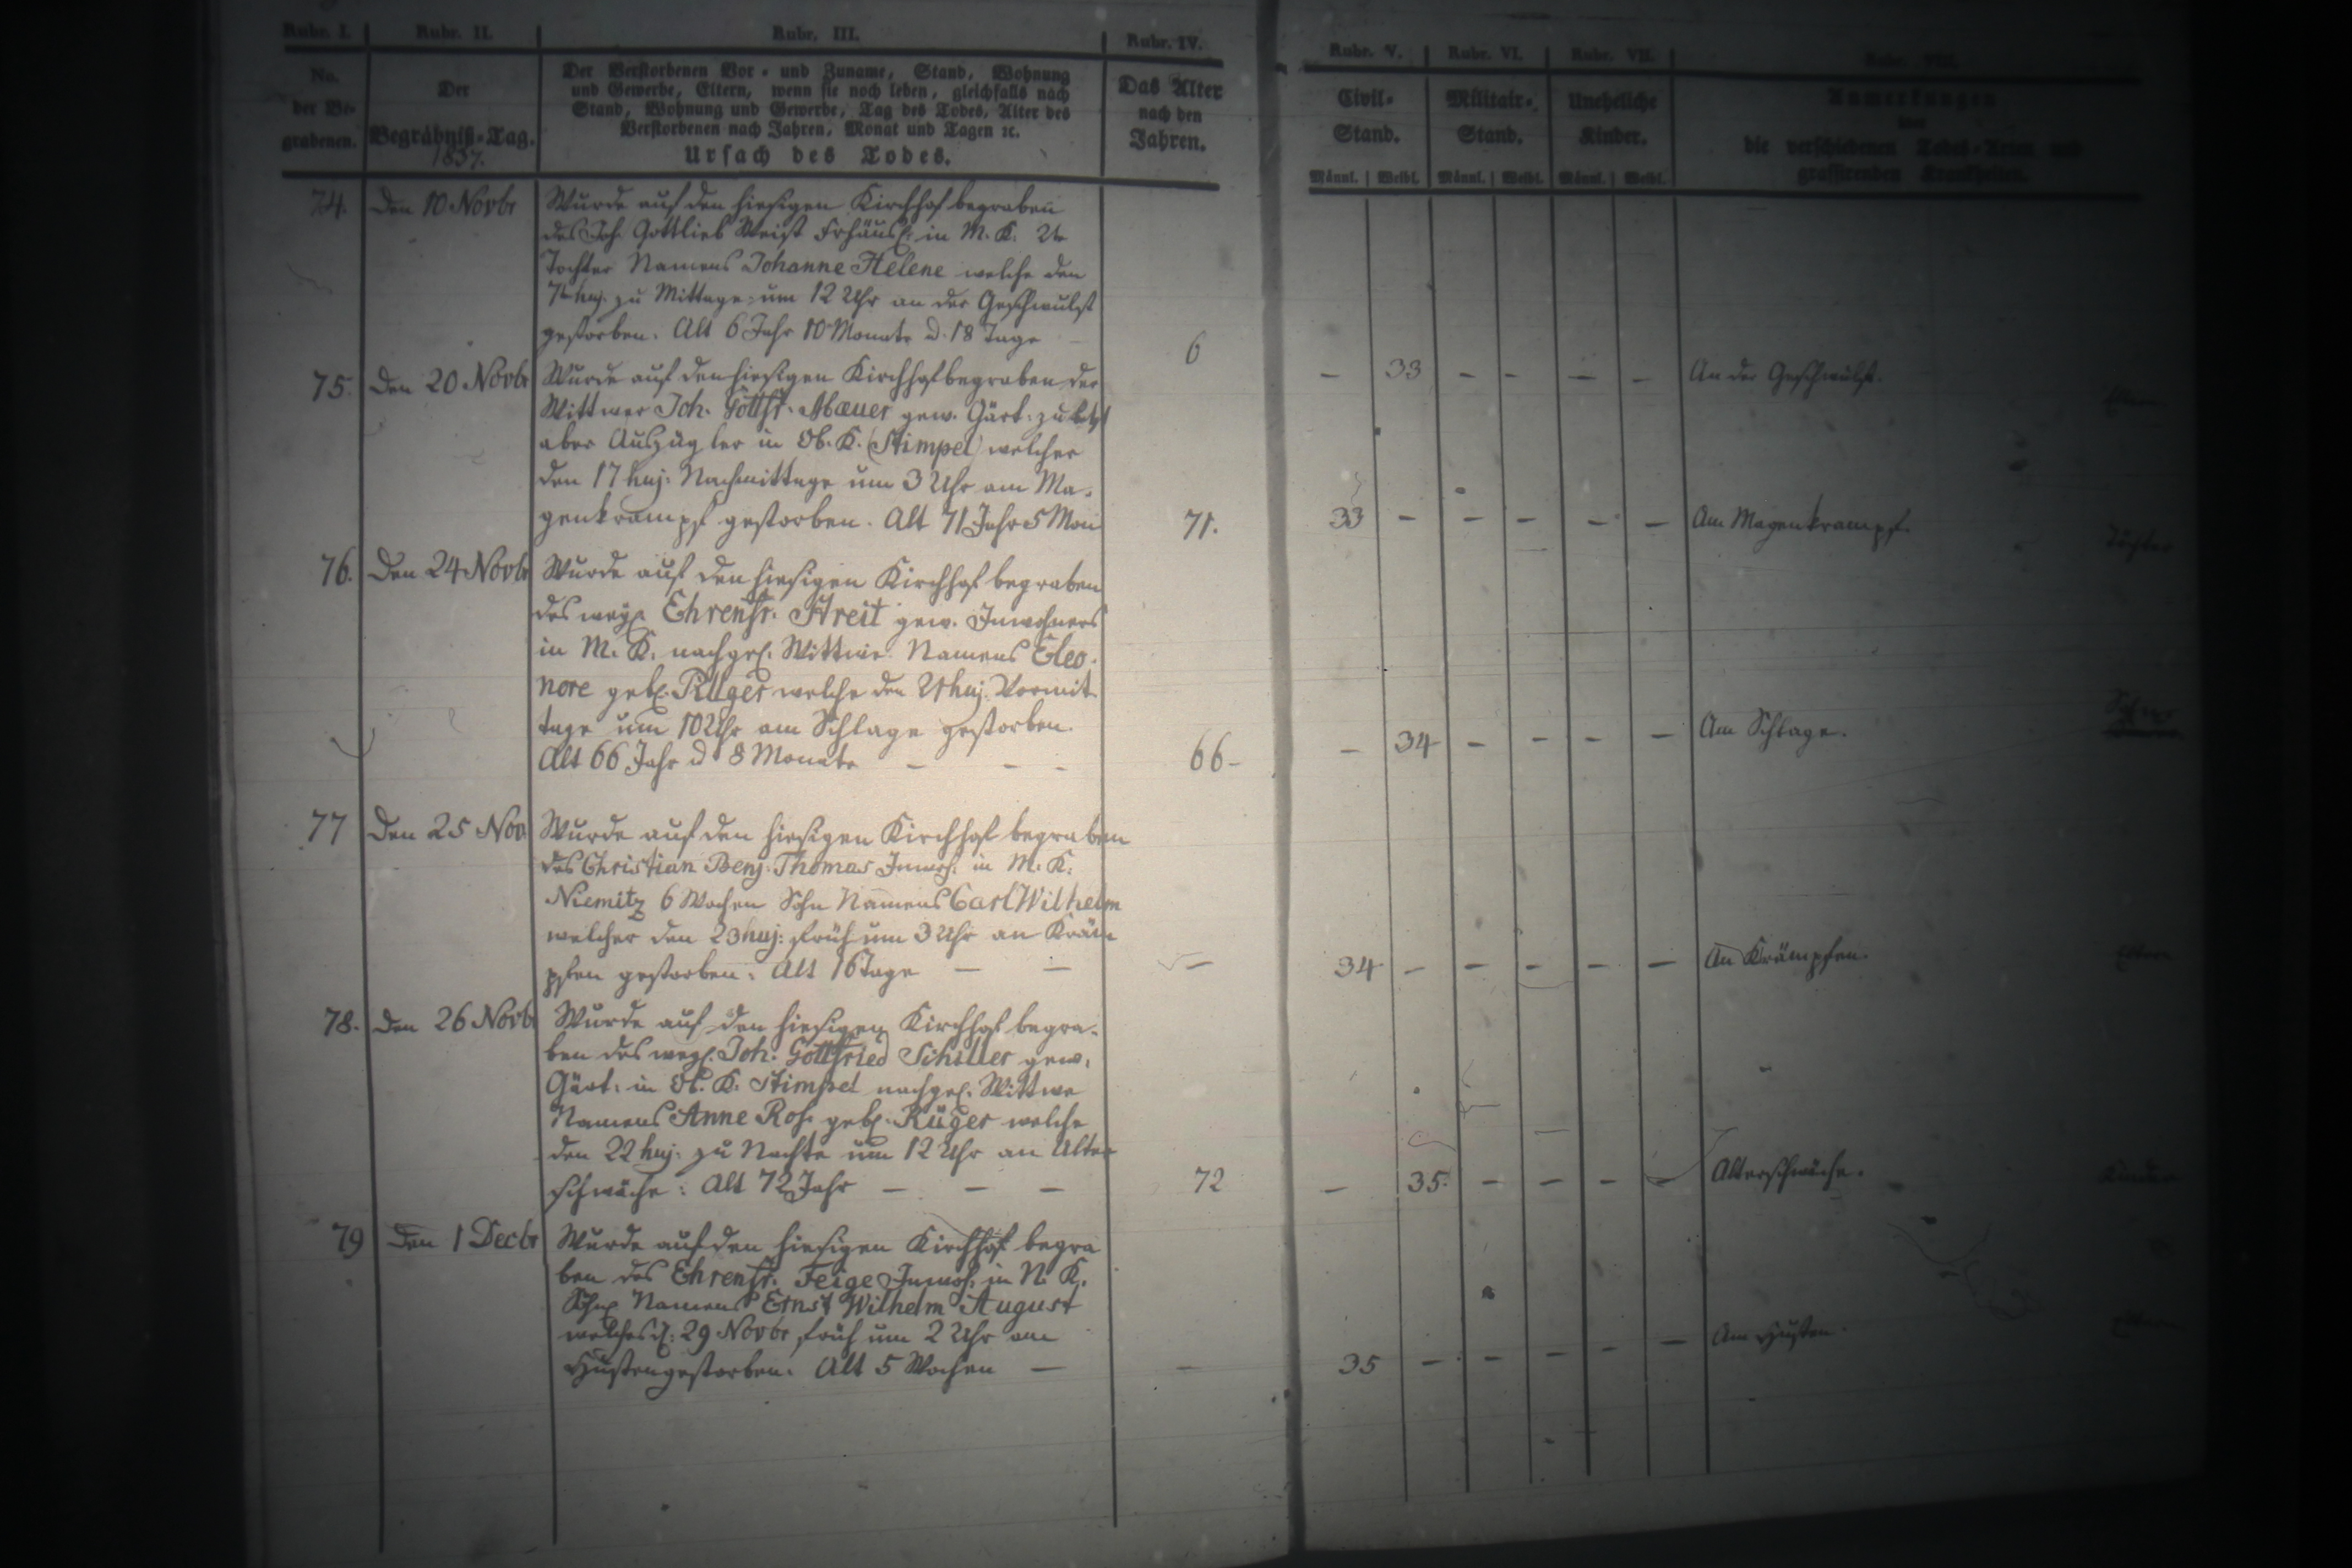 Rubr. I. Rubr. II. Rubr. III. Rubr. IV. Rubr. V. Rubr. VI. Rubr. VII. Rubr. VIII.
No. der Begrabenen.
Der Begräbniß-Tag.
1837.
Der Verstorbenen Vor- und Zuname, Stand, Wohnung
und Gewerbe, Eltern, wenn sie noch leben, gleichfalls nach
Stand, Wohnung und Gewerbe, Tag des Todes, Alter des
Verstorbenen nach Jahren, Monat und Tagen ꝛc.
Ursach des Todes.
Das Alter
nach den
Jahren.
Civil-
Stand.
Militair-
Stand.
Uneheliche
Kinder.
Anmerkungen
über
die verschiedenen Todes-Arten und
grassirenden Krankheiten.
Männl. Weibl. Männl. Weibl. Männl. Weibl.
74. Den 10 Novbr Wurde auf den hiesigen Kirchhof begraben
des Joh. Gottlieb in M. K.
Tochter Namens Johanne Helene welche den
7t huj. zu Mittage um 12 Uhr an der Geschwulst
gestorben. Alt 6 Jahr 10 Monate u. 18 Tage
6 – 33 – – – – An der Geschwulst.
75. Den 20 Novbr Wurde auf den hiesigen Kirchhof begraben der
Wittwer Joh. Gottfr. gew. Gärt. zuletzt
aber Auszügler in Ob. K. (Stimpel) welcher
den 17 huj: Nachmittage um 3 Uhr am Ma-
genkrampf gestorben. Alt 71 Jahr 5 Mon
71. 33 – – – – – Am Magenkrampf.
76. Den 24 Novbr Wurde auf den hiesigen Kirchhof begraben
des Ehrenfr. Streit gew. Inwohners
in M. K. nachgel. Wittwe Namens Eleo-
nore geb. Rüger welche den 21 huj. Vormit-
tage um 10 Uhr am Schlage gestorben.
Alt 66 Jahr u. 8 Monate – – –
66 – – 34 – – – – Am Schlage.
77 Den 25 Nov. Wurde auf den hiesigen Kirchhof begraben
des Christian Benj. Thomas Inwoh. in M. K.
Niemitz 6 Wochen Sohn Namens Carl Wilhelm
welcher den 23 huj: früh um 3 Uhr an Kräm
pfen gestorben. Alt 16 Tage – –
– 34 – – – – – An Krämpfen.
78. Den 26 Novbr Wurde auf den hiesigen Kirchhof begra-
ben des Joh. Gottfried Schiller gew.
Gärt: in Ob. K. Stimpel nachgel. Wittwe
Namens Anne Ros. geb. Rüger welche
den 22 huj: zu Nachte um 12 Uhr an Alter
schwäche: Alt 72 Jahr – – –
72 – 35. – – – – Alterschwäche.
79 Den 1 Decbr Wurde auf den hiesigen Kirchhof begra
ben des Ehrenfr. Feige Inwoh. in N. K.
Namens Ernst Wilhelm August
29 Novbr früh um 2 Uhr am
Husten gestorben. Alt 5 Wochen –
– 35 – – – – – Am Husten.